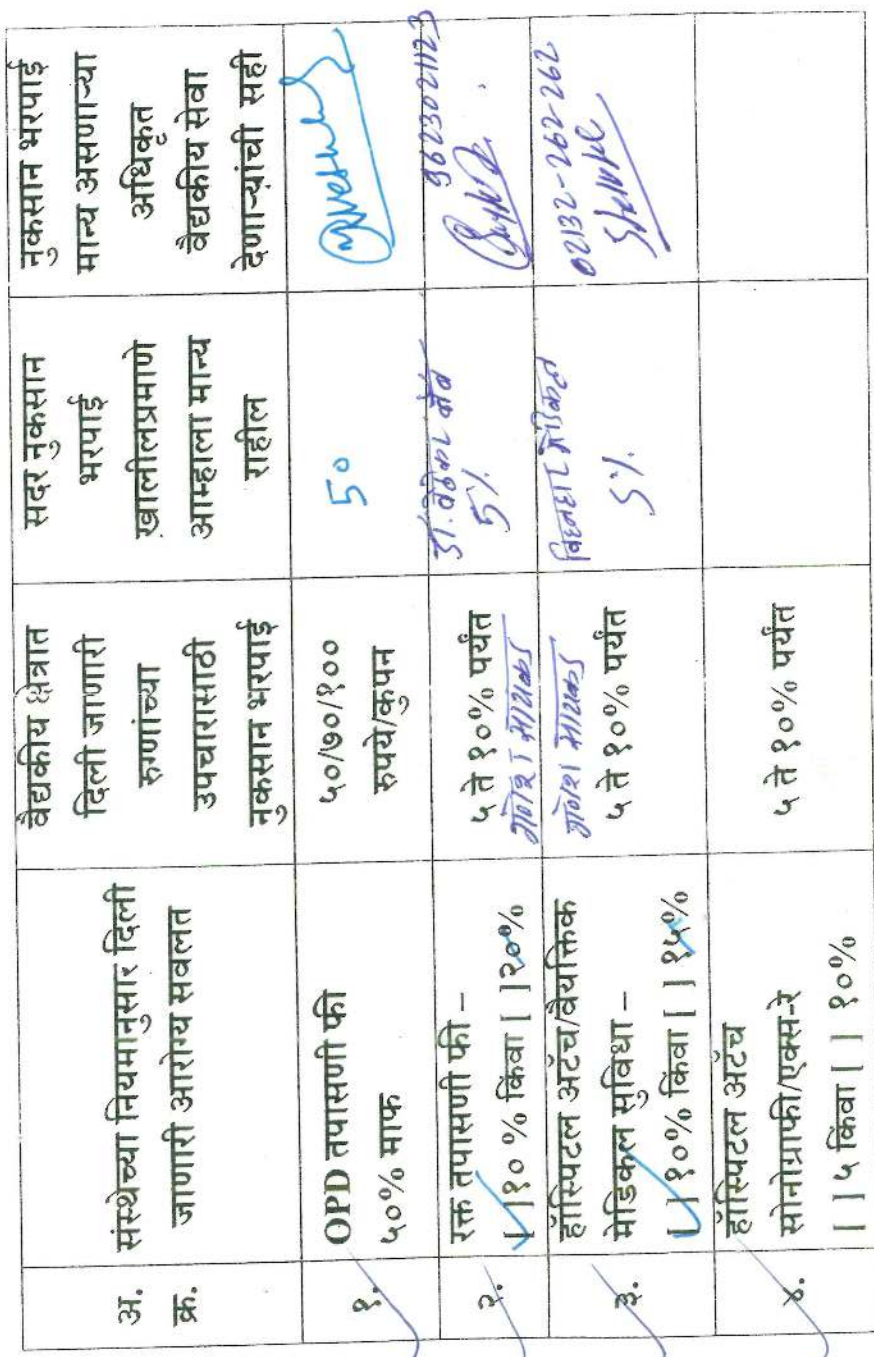 अ.
क्र.
संस्थेच्या नियमानुसार दिली
जाणारी आरोग्य सवलत
वैद्यकीय क्षेत्रात
दिली जाणारी
रुग्णांच्या
उपचारासाठी
नुकसान भरपाई
सदर नुकसान
भरपाई
खालीलप्रमाणे
आम्हाला मान्य
राहील
नुकसान भरपाई
मान्य असणाऱ्या
अधिकृत
वैद्यकीय सेवा
देणाऱ्यांची सही
१.
OPD तपासणी फी
५०% माफ
५०/७०/१००
रुपये/कुपन
50
२.
रक्त तपासणी फी –
[ ]१० % किंवा [ ]२०%
५ ते १०% पर्यंत
गणेश
5%
9623021123
३.
हॉस्पिटल अटॅच/वैयक्तिक
मेडिकल सुविधा –
[ ] १०% किंवा [ ] १५%
गणेश
५ ते १०% पर्यंत
मेडिकल
5%
02132-262-262
४.
हॉस्पिटल अटॅच
सोनोग्राफी/एक्स-रे
[ ] ५ किंवा [ ] १०%
५ ते १०% पर्यंत